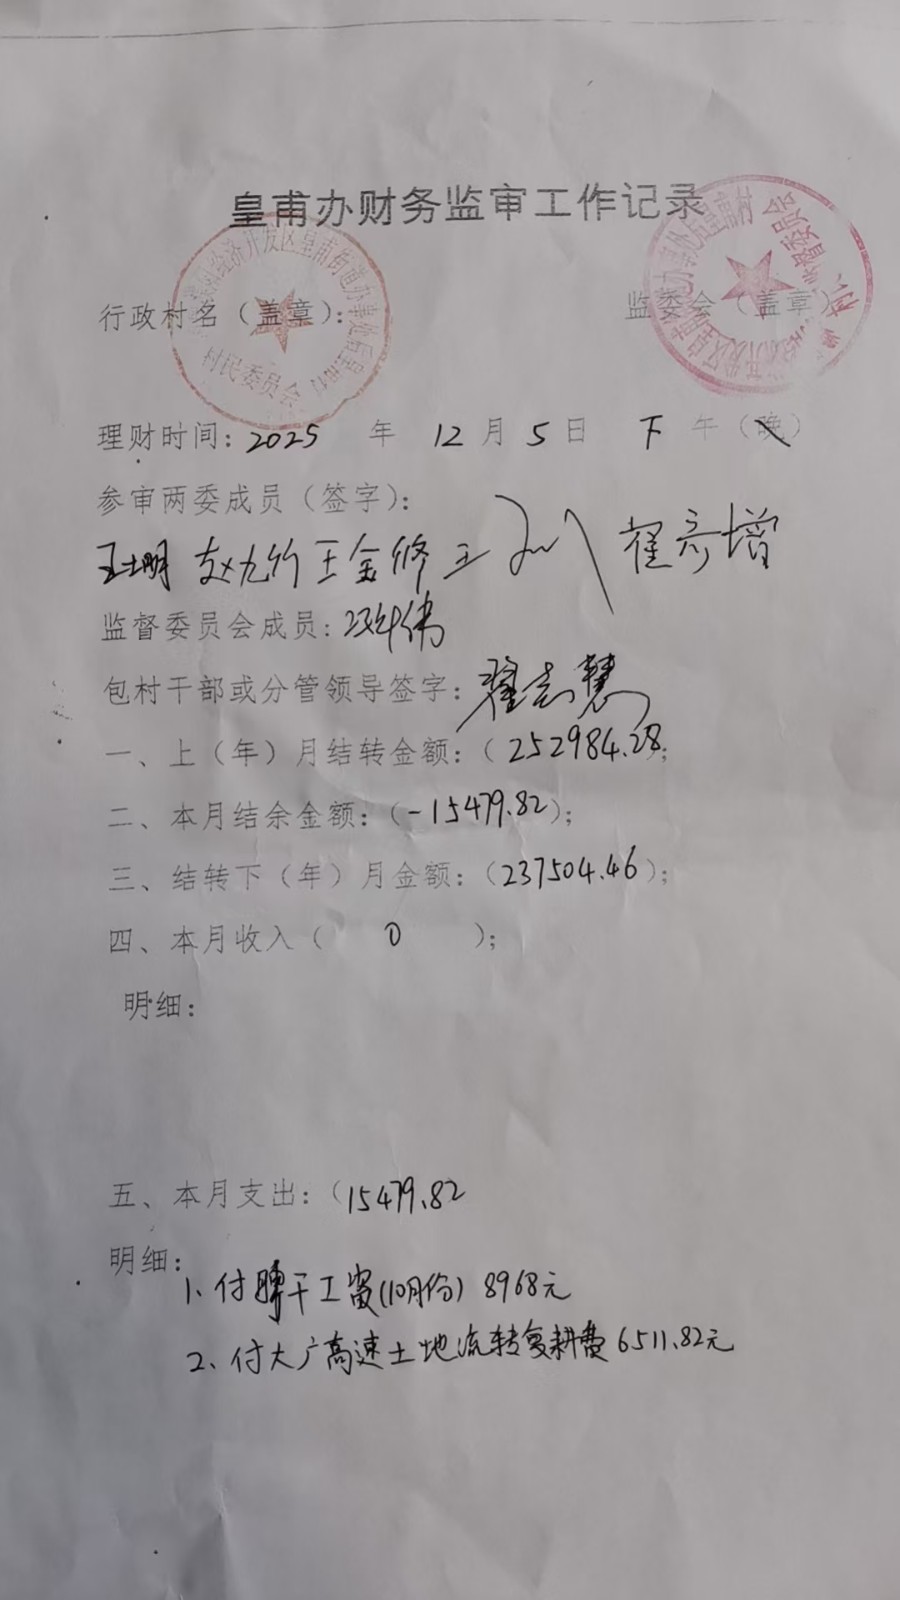 皇甫办财务监审工作记录
行政村名（盖章）： 监委会（盖章）
村民委员会
理财时间：2025 年 12月5日 下午（晚）
参审两委成员（签字）：
王金修 翟彦增
监督委员会成员：
包村干部或分管领导签字：翟志慧
一、上（年）月结转金额：（252984.28；
二、本月结余金额：（-15479.82）；
三、结转下（年）月金额：（237504.46）；
四、本月收入（ 0 ）；
明细：
五、本月支出：（15479.82
明细：
1、付聘干工资（10月份）8968元
2、付大广高速土地流转复耕费6511.82元